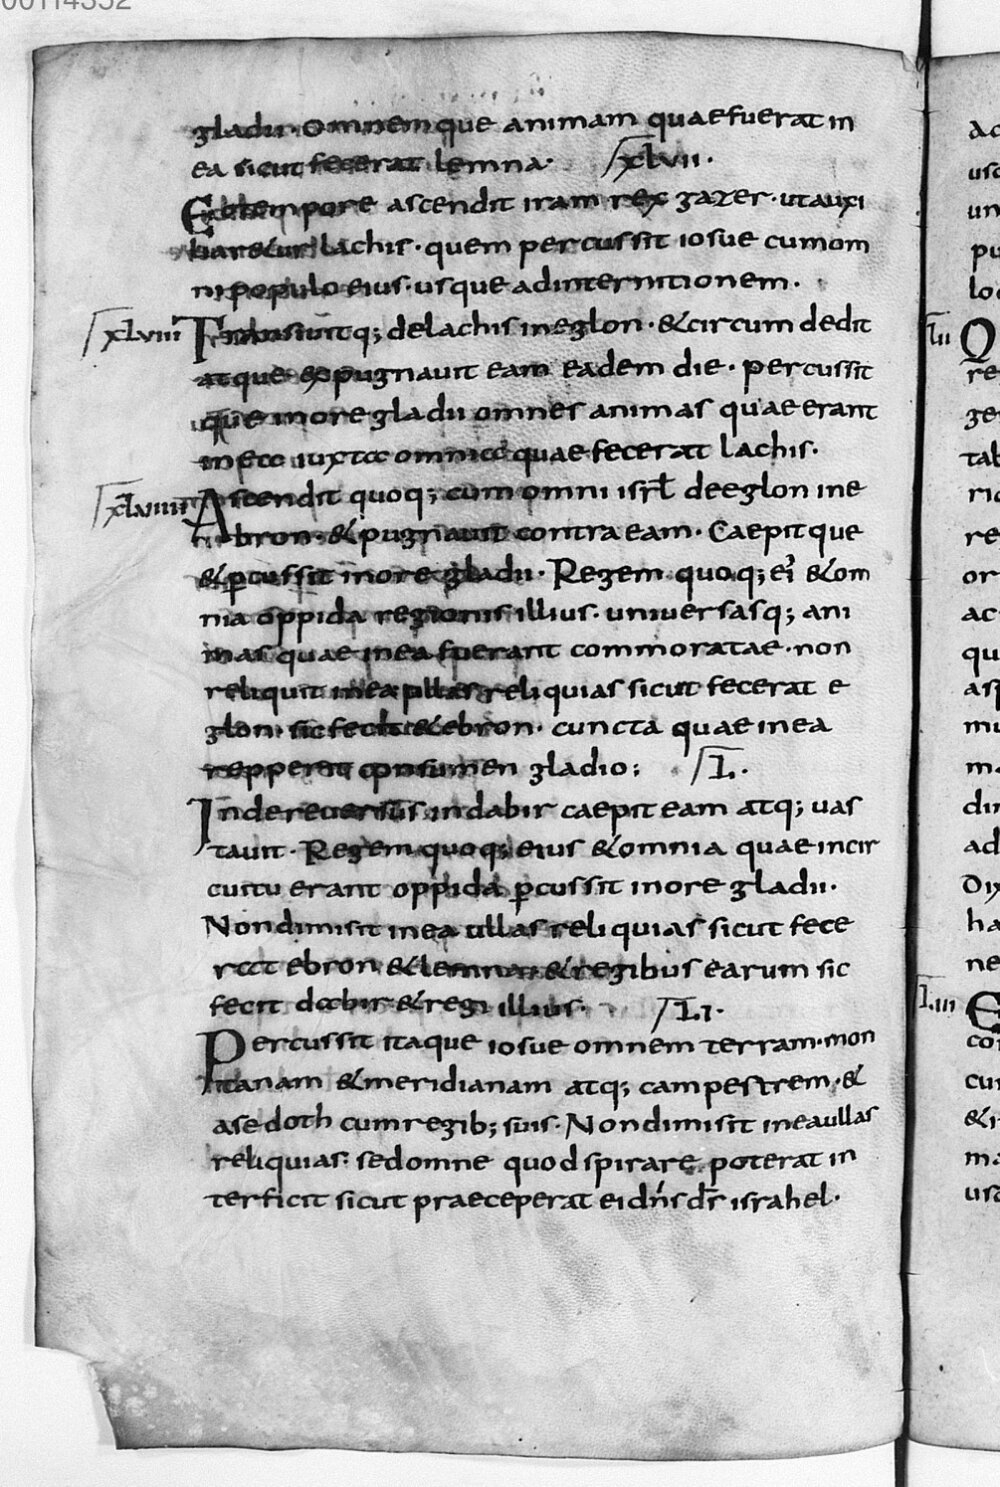 00114352
gladii· omnemque animam quae fuerat in
ea sicut fecerat lemna· xlvii·
Eo tempore ascendit iram rex gazer· ut auxi
liaretur lachis· quem percussit iosue cum om
ni populo eius· usque ad internitionem·
xlviii Transiuitq; de lachis in eglon· & circumdedit
atque expugnauit eam eadem die· percussit
que in ore gladii omnes animas quae erant
in ea iuxta omnia quae fecerat lachis·
xlviiii Ascendit quoq; cum omni isrl de eglon in e
bron· & pugnauit contra eam· Caepitque
& pcussit in ore gladii· Regem quoq; ei & om
nia oppida regionis illius· uniuersasq; ani
mas quae in ea fuerant commoratae· non
reliquit in ea ullas reliquias sicut fecerat e
glon· sic fecit & ebron· cuncta quae in ea
repperit consumen gladio; L·
Inde reuersus in dabir caepit eam atq; uas
tauit· Regem quoq; eius & omnia quae in cir
cuitu erant oppida pcussit in ore gladii·
Non dimisit in ea ullas reliquias sicut fece
rat ebron & lemna· & regibus earum sic
fecit dabir & regi illius· LI·
Percussit itaque iosue omnem terram· mon
tanam & meridianam atq; campestrem· &
asedoth cum regib; suis· Non dimisit in ea ullas
reliquias· sed omne quod spirare poterat in
terficit sicut praeceperat ei dns ds israhel·
lii Q
Liii E